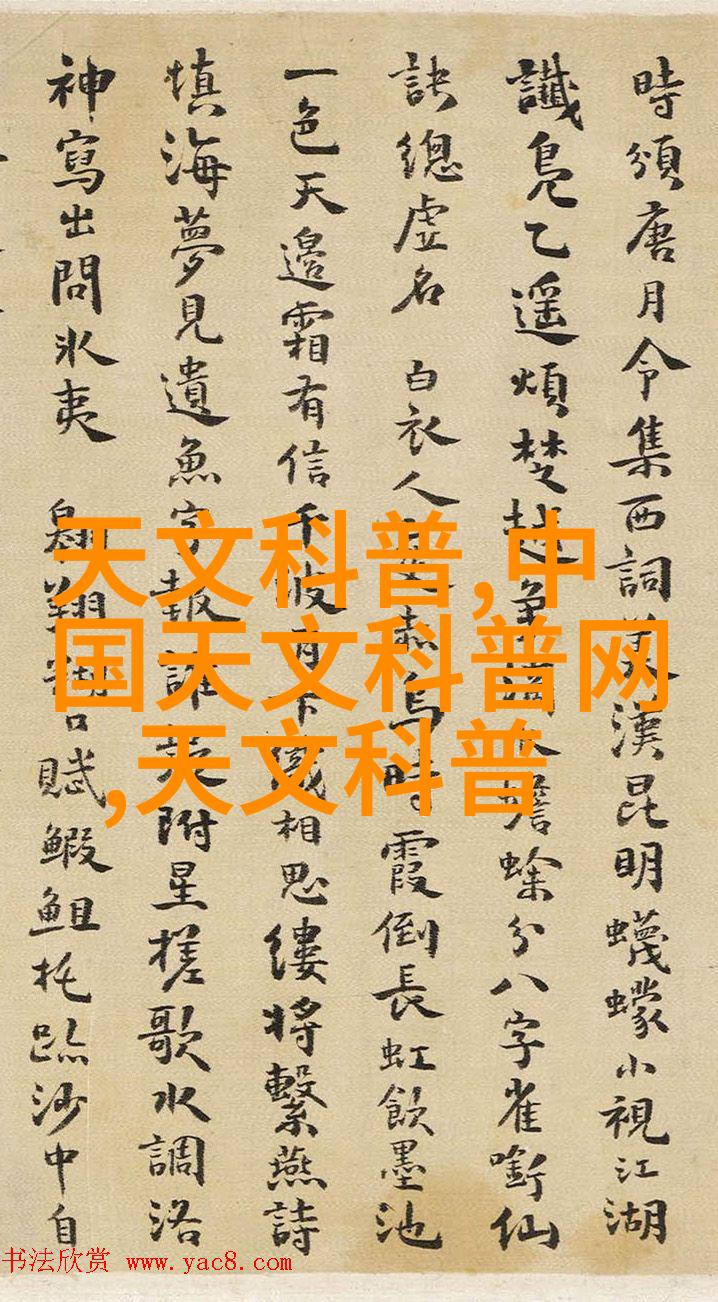 時頒唐月令集西詞漢昆明蠛蠓小視江湖
讖鳬乙遥煩楚越爭蟾蜍分八字雀銜仙
訣總虚名 白衣人烏時霞倒長虹飲墨池
一色天邉霜有信千波月下相思縷將繫燕詩
填海夢見遺魚字報誰附星槎歌水調洛
神寫出問氷夷 翺翔賦鰕鉏托跡沙中自
天文科普,中
国天文科普网
,天文科普
书法欣赏 www.yac8.com